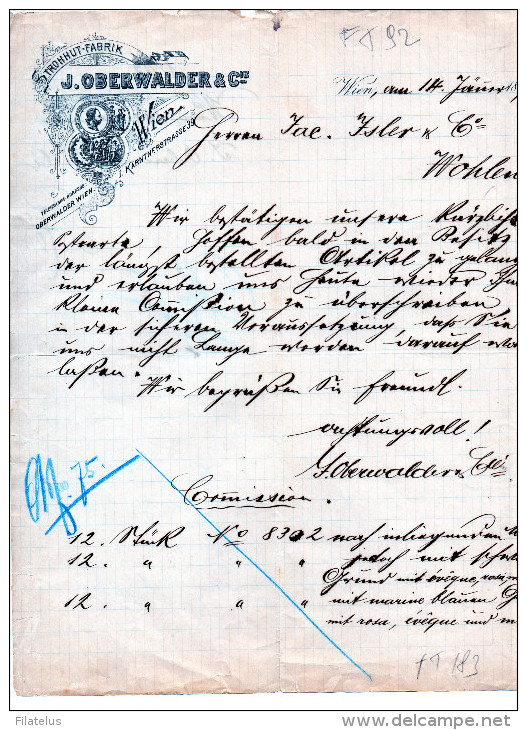 FT 92
STROHHUT-FABRIK
J. OBERWALDER & CIE
Wien
I. KÄRNTNERSTRASSE 39.
OBERWALDER WIEN.
Wien, am 14. Jänner 18
Herren Jac. Isler & Co
Wohlen
Wir bestätigen unsere
Postcarte, hoffen bald in den Besitz
der längst bestellten Artikel zu gelan
und erlauben uns heute wieder Ihn
kleine Commission zu überschreiben
in der sicheren Voraussetzung, daß Sie
uns nicht lange werden darauf war
laßen.
Wir begrüßen Sie freundl.
achtungsvoll!
J. Oberwalder & Cie.
75.
Comission.
12. Stück No 8302 nach inliegenden
12. " " " jedoch mit
Grund mit évêque, rosa
12. " " " mit marine blauen G
mit rosa, évêque und m
FT 183
Filatelus
www.delcampe.net